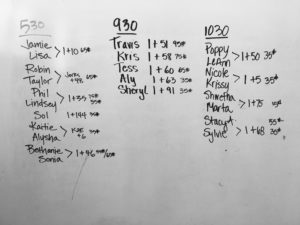 530
Jamie
Lisa > 1+10 65#
Robin
Taylor > +48 65#
Phil
Lindsey > 1+35 35#
Sol 1+144 35#
Kaitie
Alysha > +6 35#
Bethanie
Sonia > 1+46 /65#
930
Travis 1+51 95#
Kris 1+58 75#
Tess 1+60 65#
Aly 1+63 35#
Sheryl 1+91 35#
1030
Poppy
LeAnn > 1+50 35#
Nicole
Krissy > 1+5 35#
Shwetha
Marta > 1+75
Stacy A. 55#
Sylvie > 1+68 35#